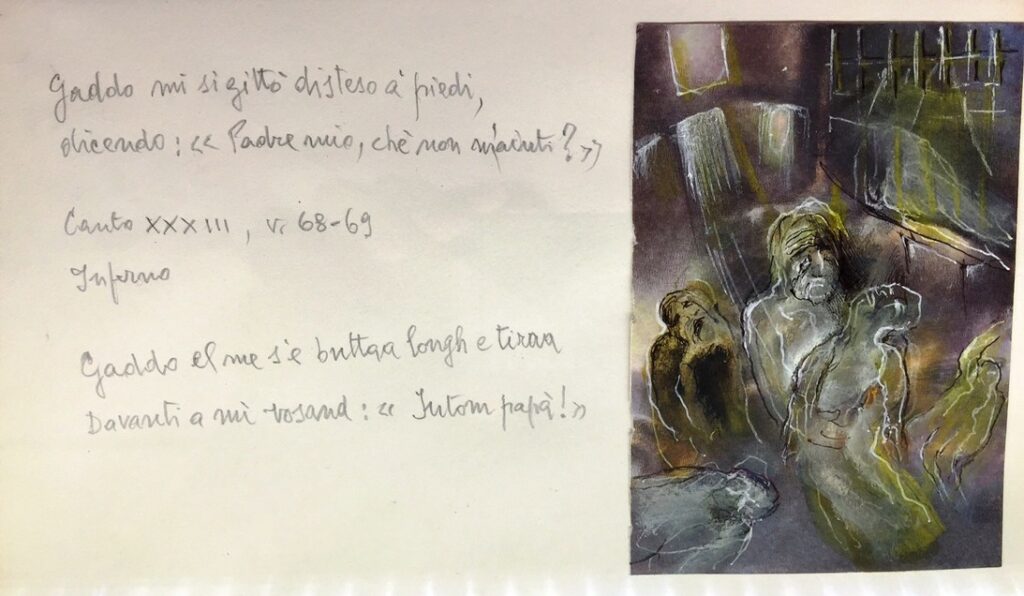 Gaddo mi si gittò disteso a' piedi,
dicendo: « Padre mio, ché non m'aiuti? »
Canto XXXIII, v. 68-69
Inferno
Gaddo el me s'è buttaa longh e tiraa
Davanti a mì vosand: « Jutom papà! »